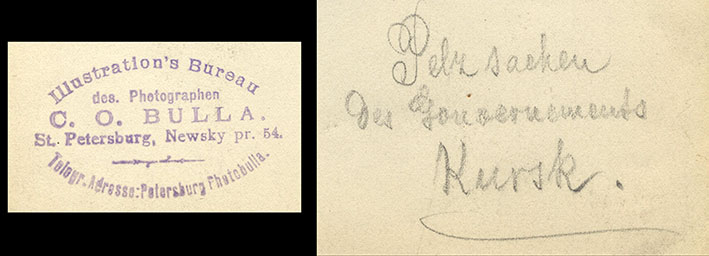 Illustration's Bureau
des. Photographen
C. O. BULLA.
St. Petersburg, Newsky pr. 54.
Telegr. Adresse: Petersburg Photobulla.
Pelz sachen
Des Gouvernements
Kursk.